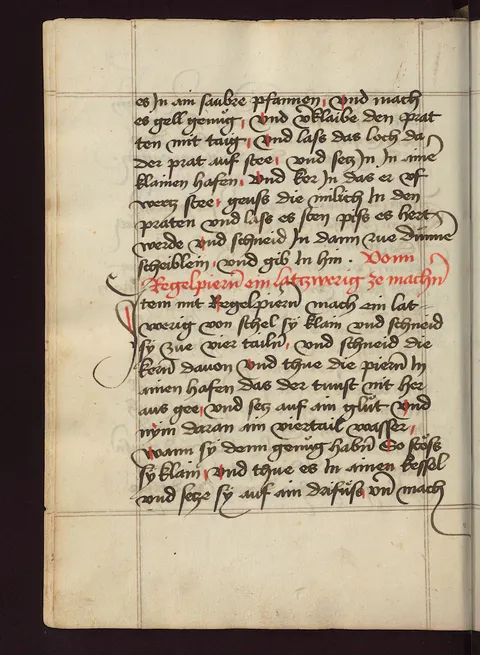 es In ain saubre pfannen, vnd mach
es gell genu̇g, Vnd v̈klaibe den prat
ten mit taig, Vnd lass das loch da
der prat auf stee, vnd setz In In aine
klainen hafen, Vnd ker In das er vf
wertz stee, geuss die milich In den
praten vnd lass es sten piss es hert
werde vnd schneid In dann zue dünne
scheiblein, vnd gib In hin. Vonn
Regelpiern̄ ein latzwerig ze machn̄
Item mit Regelpiern̄ mach ein lat
werig von schel sy klain vnd schneid
sy zue vier tailn̄, vnd schneid die
kern̄ dauon vnd thue die piern̄ In
ainen hafen das der tunst nit her
aus gee, vnd setz auf ain glu̇t vnd
nÿm daran ain viertail wasser,
wann sy denn genu̇g habn̄ So stöss
sy klain, vnd thue es In ainen kessel
vnd setze sy auf ain drifu̇ss vn̄ mach